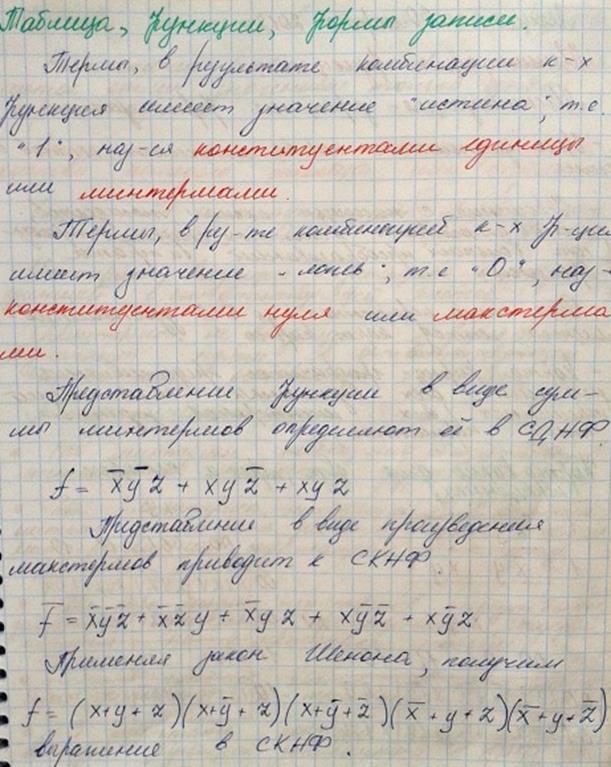 Таблица, функции, формы записи.
Термы, в результате комбинации к-х
функция имеет значение "истина", т.е
"1", наз-ся конституентами единицы
или минтермами.
Термы, в рез-те комбинацией к-х ф-ция
имеет значение "ложь", т.е "0", наз-
конституентами нуля или макстерма
ми.
Представление функции в виде сум-
мы минтермов определяют её в СДНФ
f = x̅y̅z + xyz̅ + xyz
Представление в виде произведения
макстермов приводит к СКНФ.
f̅ = x̅y̅z̅ + x̅z̅y + x̅yz + xy̅z̅ + xy̅z
Применяя закон Шенона, получим
f = (x+y+z)(x+y̅+z)(x+y̅+z̅)(x̅+y+z)(x̅+y+z̅)
выражение в СКНФ.